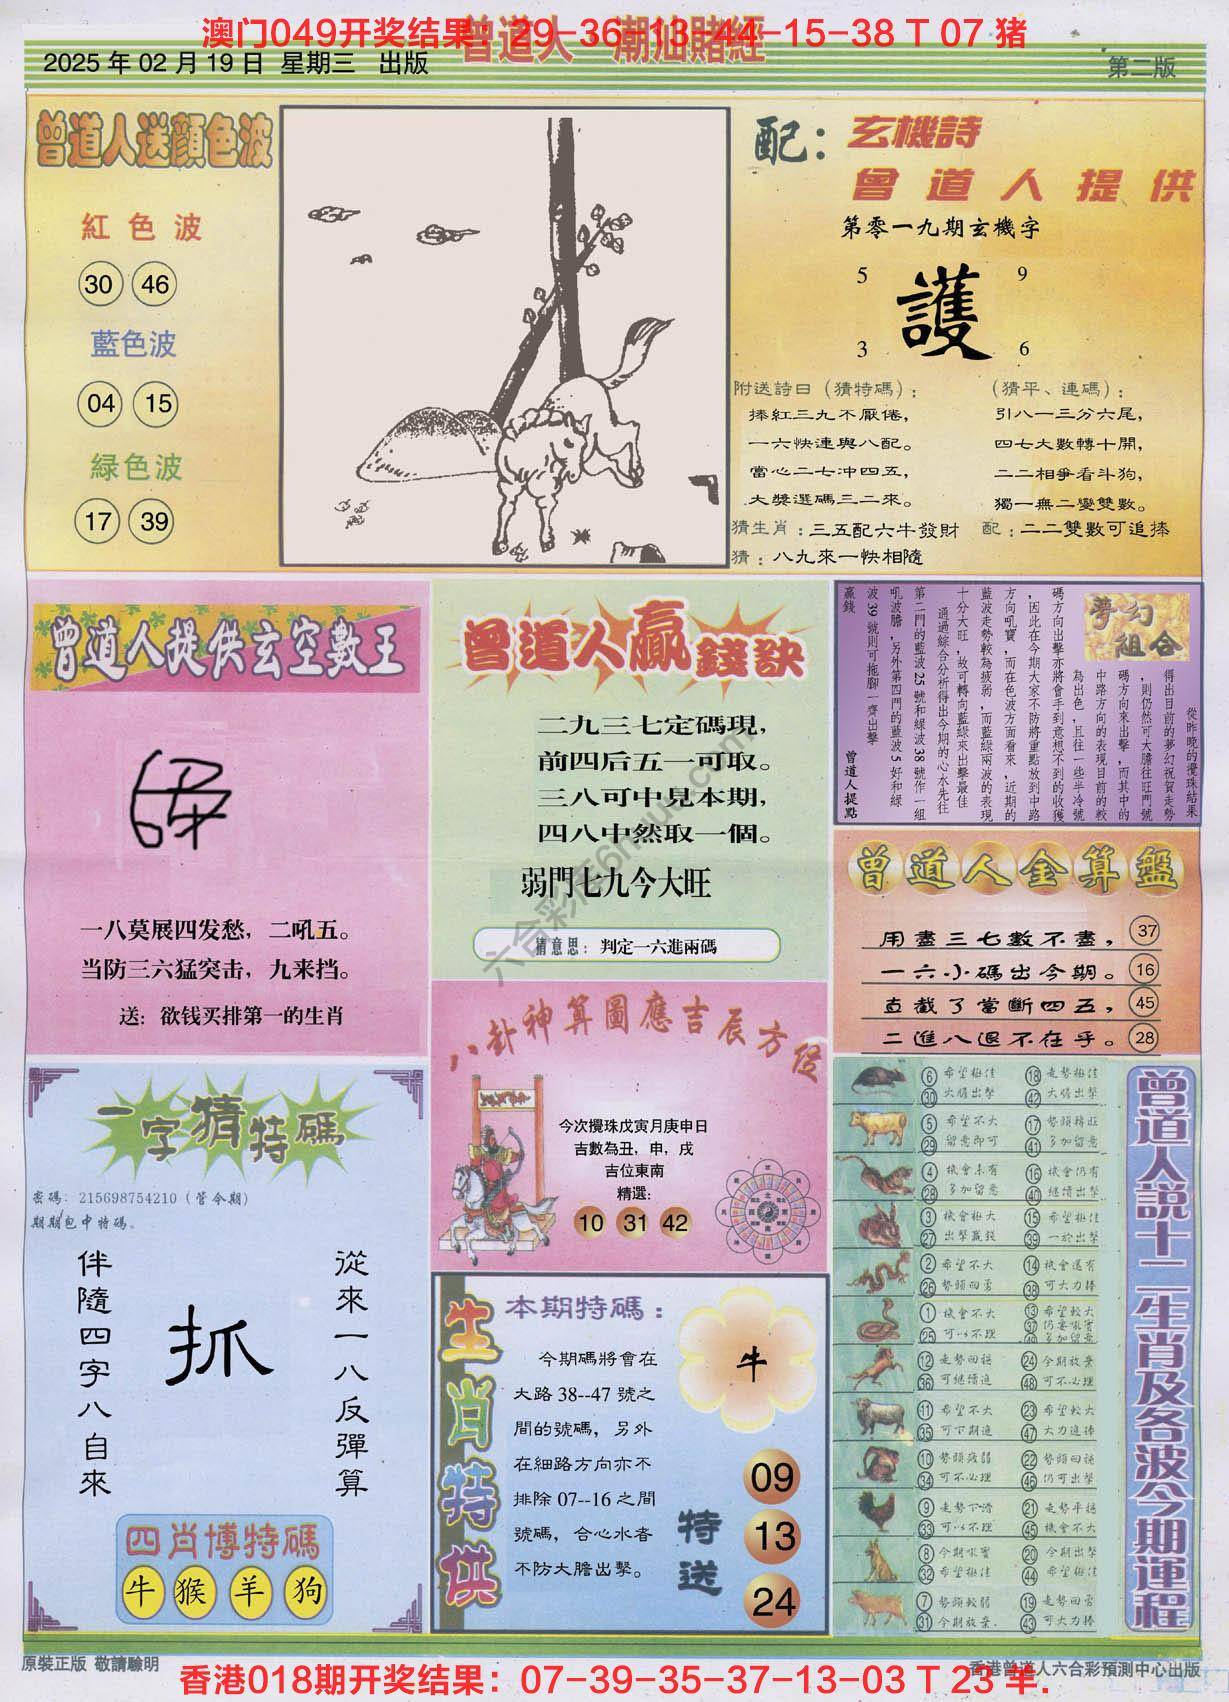 澳门049开奖结果：29-36-13-44-15-38 T 07 猪
曾道人 潮汕賭經
2025 年 02 月 19 日 星期三 出版
第二版
曾道人送顏色波
紅色波
30 46
藍色波
04 15
緑色波
17 39
配：玄機詩
曾道人提供
第零一九期玄機字
5 9
護
3 6
附送詩曰（猜特碼）：
捧紅三九不厭倦，
一六快連與八配。
當心二七冲四五，
大獎選碼三二來。
（猜平、連碼）：
引八一三分六尾，
四七大數轉十開，
二二相爭看斗狗，
獨一無二變雙數。
猜生肖：三五配六牛發財
配：二二雙數可追捧
猜：八九來一快相隨
曾道人提供玄空數王
一八莫展四发愁，二吼五。
当防三六猛突击，九来挡。
送：欲钱买排第一的生肖
曾道人贏錢訣
二九三七定碼現，
前四后五一可取。
三八可中見本期，
四八中然取一個。
弱門七九今大旺
猜意思：判定一六進兩碼
夢幻組合
從昨晚的攪珠結果
得出目前的夢幻祝賀走勢
，則仍然可大膽往旺門號
碼方向來出擊，而其中的
中路方向的表現目前的較
為出色，且往一些半冷號
碼方向出擊亦將會手到意想不到的收獲
，因此在今期大家不防將重點放到中路
方向吼寶，而在色波方面看來，近期的
藍波走勢較為疲弱，而藍綠兩波的表現
十分大旺，故可轉向藍綠來出擊最佳
通過綜合分析得出今期的心水先往
第二門的藍波 25 號和綠波 38 號作一組
吼波膽，另外第四門的藍波 5 好和綠
波 39 號則可拖腳一齊出擊
贏錢
曾道人提點
曾道人金算盤
用盡三七數不盡， 37
一六小碼出今期。 16
直截了當斷四五， 45
二進八退不在乎。 28
八卦神算圖應吉辰方位
今次攪珠戊寅月庚申日
吉數為丑，申，戌
吉位東南
精選:
10 31 42
一字猜特碼
密碼: 215698754210（管令期）
期期包中特碼。
從來一八反彈算
抓
伴隨四字八自來
四肖博特碼
牛 猴 羊 狗
生肖特供
本期特碼：
今期碼將會在
大路 38--47 號之
間的號碼，另外
在細路方向亦不
排除 07--16 之間
號碼，合心水者
不防大膽出擊。
牛
特送
09
13
24
曾道人説十二生肖及各波今期運程
6 希望極佳 18 走勢極佳
30 大膽出擊 42 大膽出擊
5 希望不大 17 勢頭轉旺
29 留意即可 41 多加留意
4 機會未有 16 機會仍有
28 多加留意 40 繼續出擊
3 機會極大 15 希望極佳
27 出擊贏錢 39 一於出擊
2 希望不大 14 機會還有
26 勢頭回勇 38 可大力捧
1 機會不大 13 希望較大
25 可以不理 37 仍要吼實
49 多加留意
12 走勢回穩 24 今期放棄
36 可繼續追 48 可不必理
11 希望不大 23 希望較大
35 可下期追 47 大力追捧
10 勢頭疲弱 22 勢頭回穩
34 可不必理 46 仍可出擊
9 走勢下滑 21 走勢平穩
33 可以不理 45 機會不大
8 今期吼實 20 今期出擊
32 希望極佳 44 希望極佳
7 勢頭較弱 19 走勢回勇
31 今期放棄. 43 可大力捧
六合彩库6huu.com
原裝正版 敬請驗明
香港曾道人六合彩預測中心出版
香港018期开奖结果：07-39-35-37-13-03 T 23 羊.